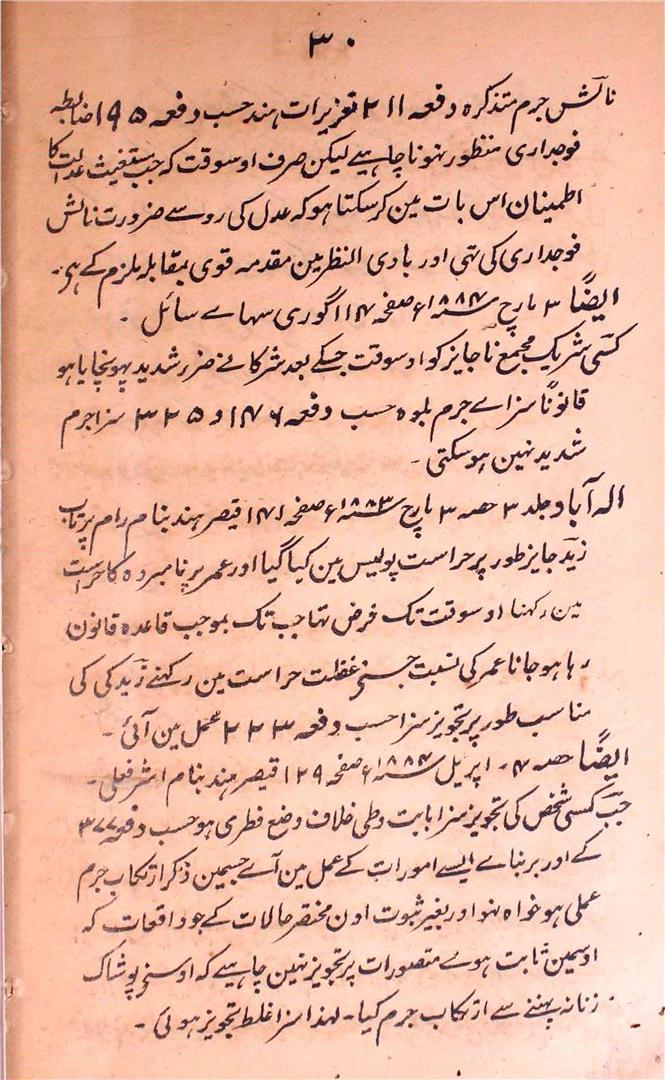 ۳۰
نالش جرم متذکرہ دفعہ ۲۱۱ تعزیرات ہند حسب دفعہ ۱۹۵ ضابطہ
فوجداری منظور نہونا چاہیے لیکن صرف اوسوقت کہ جب مستغیث عدالت کا
اطمینان اس بات مین کرسکتا ہو کہ عدل کی روسے ضرورت نالش
فوجداری کی تہی اور بادی النظر مین مقدمہ قوی بمقابلہ ملزم کے ہی۔
ایضاً ۳ مارچ سنہ ۱۸۸۴ء صفحہ ۱۱۴ گوری سہاے سائل ۔
کسی شریک مجمع ناجایز کو اوسوقت جسکے بعد شرکائے ضرر شدید پہونچایا ہو
قانوناً سزاے جرم بلوہ حسب دفعہ ۱۴۶ و ۳۲۵ سزا جرم
شدید نہین ہوسکتی ۔
الہ آباد جلد ۳ حصہ ۳ مارچ سنہ ۱۸۸۳ء صفحہ ۱۴۱ قیصر ہند بنام رام پرتاب
زید جایز طور پر حراست پولیس مین کیا گیا اور عمر پر نامبردہ کا حراست
مین رکہنا اوسوقت تک فرض تہا جب تک بموجب قاعدہ قانون
رہا ہوجانا عمر کی نسبت جسنے غفلت حراست مین رکہنے زید کی کی
مناسب طور پر تجویز سزا حسب دفعہ ۲۲۳ عمل مین آئی ۔
ایضاً حصہ ۴ ۔ اپریل سنہ ۱۸۸۴ء صفحہ ۱۲۹ قیصر ہند بنام
جب کسی شخص کی تجویز سزا بابت وطی خلاف وضع فطری ہو حسب دفعہ ۳۷۷
کے اور بربناے ایسے امورات کے عمل مین آے جسمین ذکر ارتکاب جرم
عملی ہو خواہ نہو اور بغیر ثبوت اون مختصر حالات کے جو واقعات کہ
اوسمین ثابت ہوے متصورات پر تجویز نہین چاہیے کہ اوسنے پوشاک
زنانہ پہننے سے ارتکاب جرم کیا۔ لہذا سزا غلط تجویز ہوئی ۔